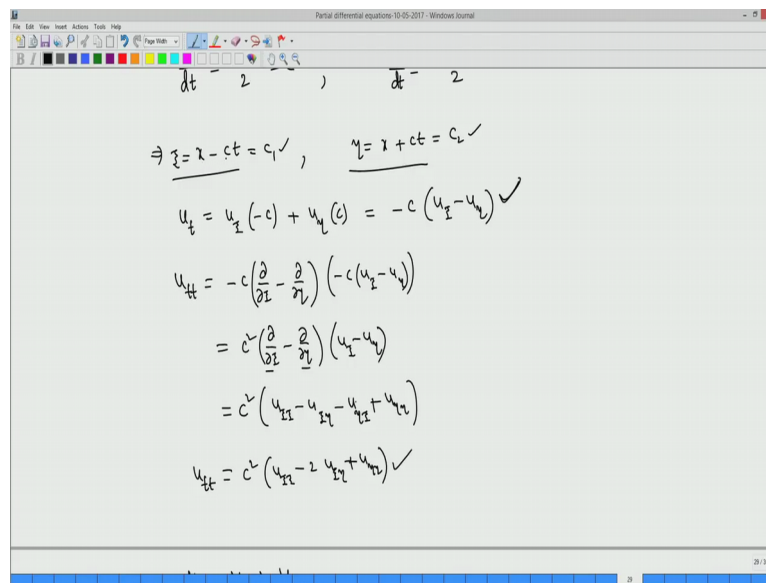 Partial differential equations-10-05-2017 - Windows Journal
File Edit View Insert Actions Tools Help
Page Width
B I
dt = 2 , dt = 2
⇒ ξ = x - ct = c₁ ✓ , η = x + ct = c₂ ✓
u_t = u_ξ (-c) + u_η (c) = -c (u_ξ - u_η) ✓
u_tt = -c (∂/∂ξ - ∂/∂η) (-c (u_ξ - u_η))
= c² (∂/∂ξ - ∂/∂η) (u_ξ - u_η)
= c² (u_ξξ - u_ξη - u_ηξ + u_ηη)
u_tt = c² (u_ξξ - 2 u_ξη + u_ηη) ✓
29 / 3
29